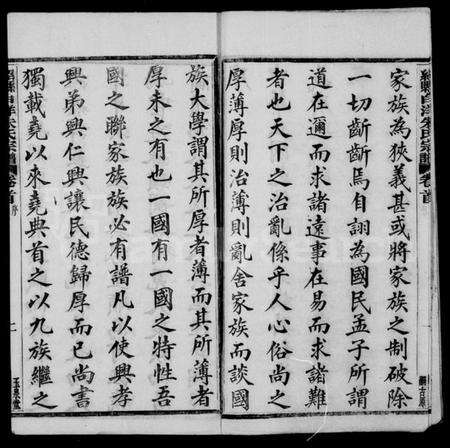 家族為狹義甚或將家族之制破除
一切齗齗焉自詡為國民孟子所謂
道在邇而求諸遠事在易而求諸難
者也天下之治亂係乎人心俗尚之
厚薄厚則治薄則亂舍家族而談國
族大學謂其所厚者薄而其所薄者
厚未之有也一國有一國之特性吾
國之聯家族族必有譜凡以使興孝
興弟興仁興讓民德歸厚而已尚書
獨載堯以來堯典首之以九族繼之